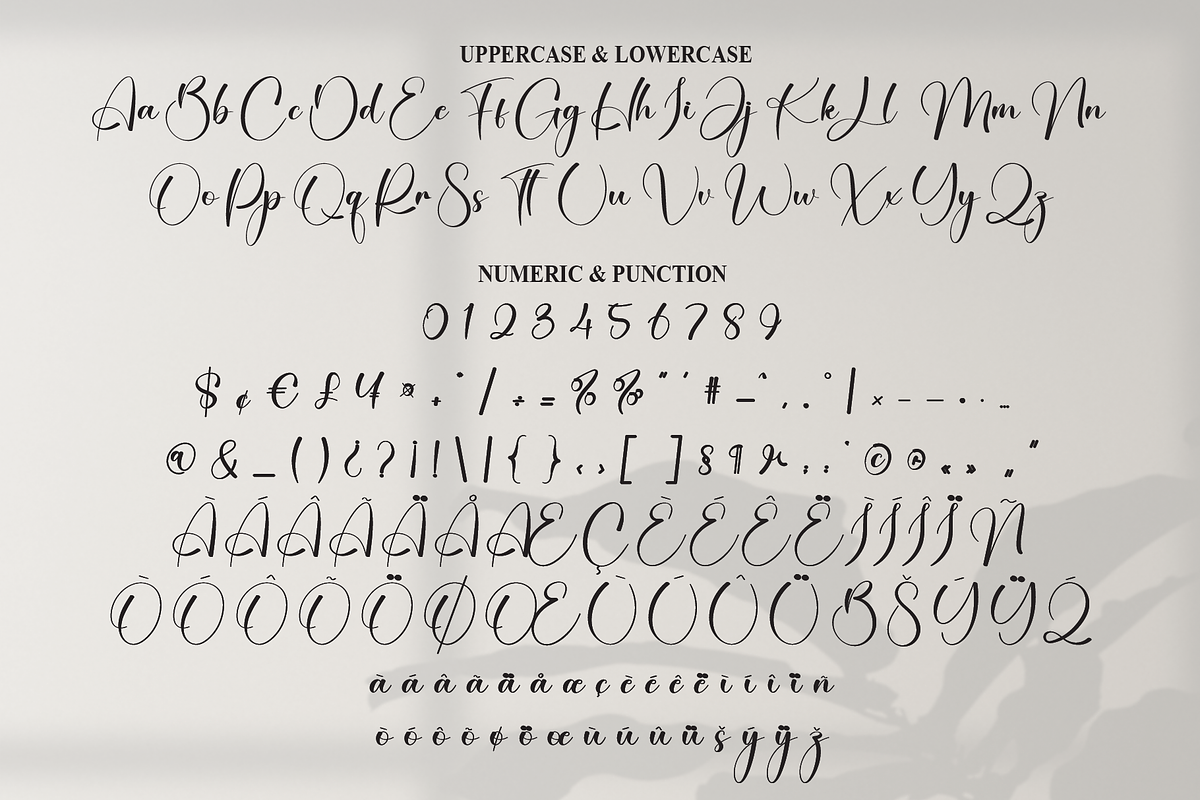 UPPERCASE & LOWERCASE
Aa Bb Cc Dd Ee Ff Gg Hh Ii Jj Kk Ll Mm Nn
Oo Pp Qq Rr Ss Tt Uu Vv Ww Xx Yy Zz
NUMERIC & PUNCTION
0 1 2 3 4 5 6 7 8 9
$ ¢ € £ ¥ ¤ + ˙ / ÷ = % ‰ " ' # – ^ , . ° | × – — • · …
@ & _ ( ) ¿ ? ¡ ! \ | { } ‹ › [ ] § ¶ µ ; : ' © ® « » „ "
À Á Â Ã Ä Å Æ Ç È É Ê Ë Ì Í Î Ï Ñ
Ò Ó Ô Õ Ö Ø Œ Ù Ú Û Ü ß Š Ý Ÿ Ž
à á â ã ä å æ ç è é ê ë ì í î ï ñ
ò ó ô õ ø ö œ ù ú û ü š ý ÿ ž